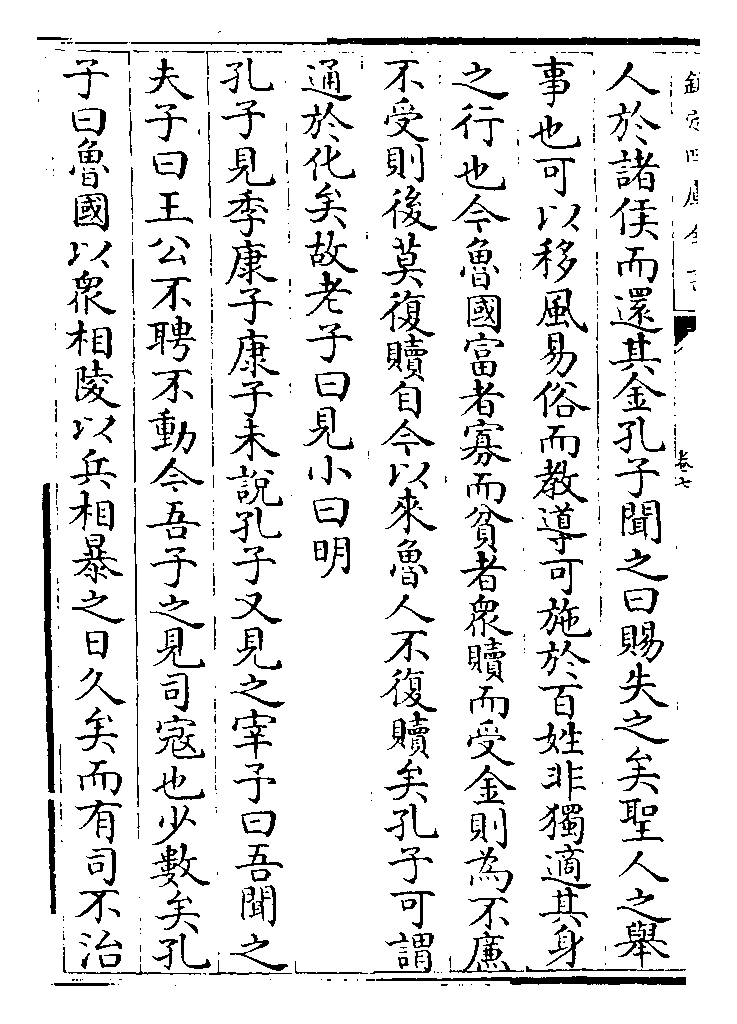 欽定四庫全書
卷七
人於諸侯而還其金孔子聞之曰賜失之矣聖人之舉
事也可以移風易俗而教導可施於百姓非獨適其身
之行也今魯國富者寡而貧者衆贖而受金則為不廉
不受則後莫復贖自今以來魯人不復贖矣孔子可謂
通於化矣故老子曰見小曰明
孔子見季康子康子未說孔子又見之宰予曰吾聞之
夫子曰王公不聘不動今吾子之見司寇也少數矣孔
子曰魯國以衆相陵以兵相暴之日久矣而有司不治